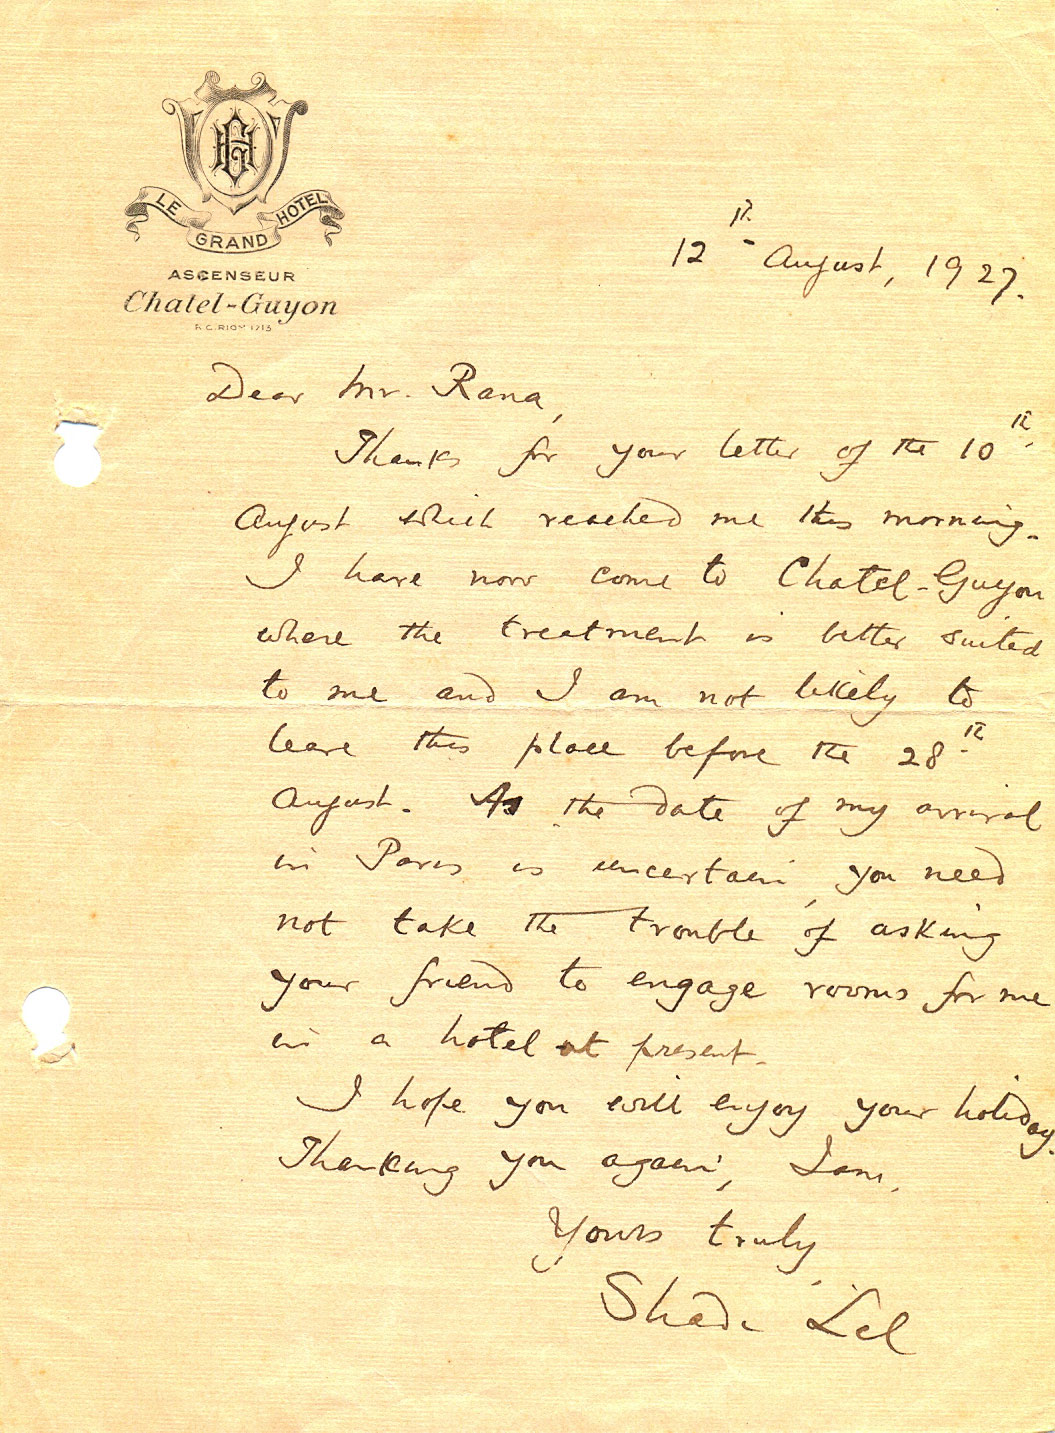 GH
LE GRAND HOTEL
ASCENSEUR
Chatel-Guyon
R.C. RIOM 1213
12th August, 1927.
Dear Mr. Rana,
Thanks for your letter of the 10th
August which reached me this morning.
I have now come to Chatel-Guyon
where the treatment is better suited
to me and I am not likely to
leave this place before the 28th
August. As the date of my arrival
in Paris is uncertain, you need
not take the trouble of asking
your friend to engage rooms for me
in a hotel at present.
I hope you will enjoy your holiday.
Thanking you again, I am,
Yours truly,
Shadi Lal